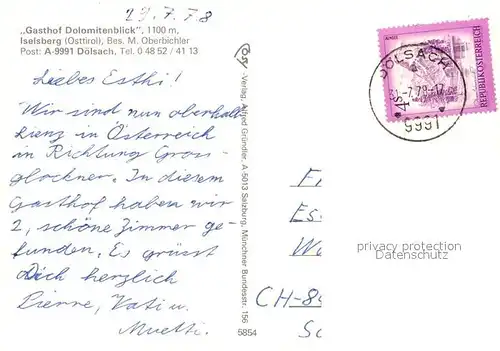 29.7.78
„Gasthof Dolomitenblick", 1100 m,
Iselsberg (Osttirol), Bes. M. Oberbichler
Post: A-9991 Dölsach, Tel. 0 48 52 / 41 13
Liebes Esthi!
Wir sind nun oberhalb
Lienz in Österreich
in Richtung Gross-
glockner. In diesem
Gasthof haben wir
2, schöne Zimmer ge-
funden. Es grüsst
Dich herzlich
Pierre, Kati u.
Muetti.
-Verlag, Alfred Gründler, A-5013 Salzburg, Münchner Bundesstr. 156
5854
REPUBLIK ÖSTERREICH
DÖLSACH
-7.78-17
9991
CH-8
privacy protection
Datenschutz